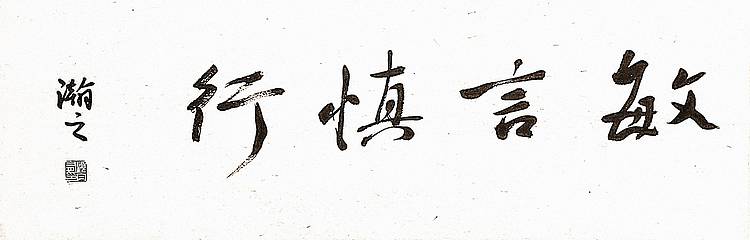 敏言慎行
瀚之